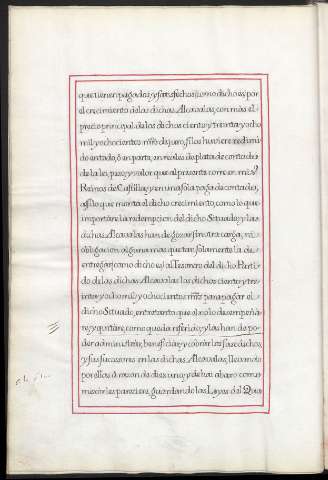 que tienen pagados, y satisfechos (como dicho es) por
el crecimiento de las dichas Alcavalas, con mas el
precio principal de los dichos ciento y treinta y ocho
mil y ochocientos mrs de juro, si los huviere redimi-
do en todo, ò en parte, en reales de plata de contado
de la lei, peso, y valor que al presente corre en mis
Reinos de Castilla, y en una sola paga de contado,
assi lo que monta el dicho crecimiento, como lo que
importare la redempcion del dicho Situado, y las
dichas Alcavalas han de gozar sin otra carga, ni
obligacion alguna mas que tan solamente la de
entregar (como dicho es) al Tesorero del dicho Parti-
do de las dichas Alcavalas los dichos ciento y tre-
inta y ocho mil y ochocientos mrs para pagar el
dicho Situado, entretanto que el no lo desempeña-
re, y quitare, como queda referido; y los han de po-
der administrar, beneficiar, y cobrar los susodichos,
y sus sucesores en las dichas Alcavalas, llevando
por ellas à razon de diez uno, y de hai abaxo como
mexor les pareciere, guardando las Leyes del Qua-